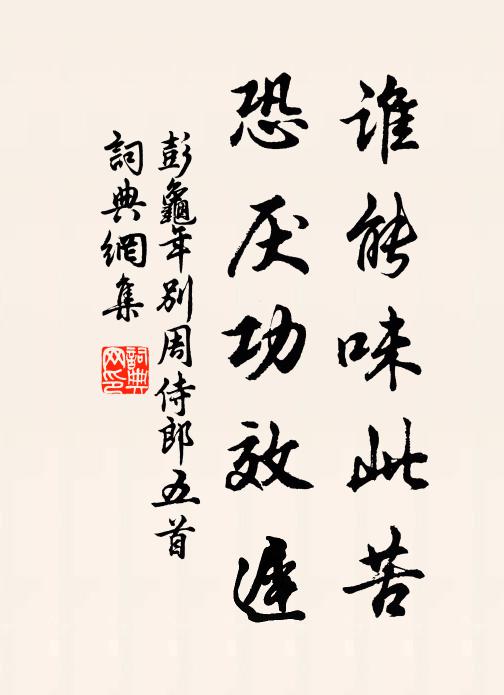 谁能味此苦
恐厌功效遲
彭龜年别周侍郎五首
詞典網集
詞典网印